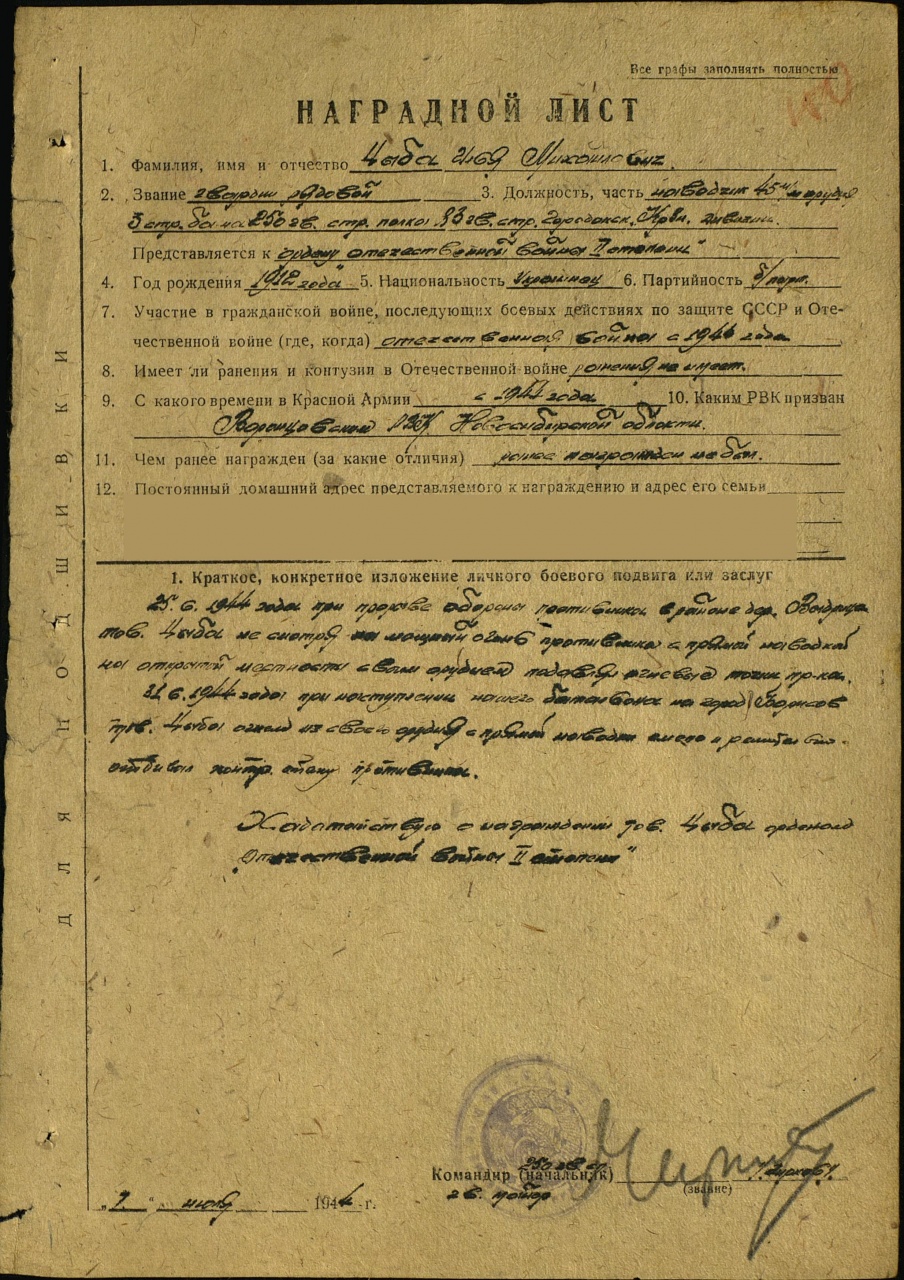 Все графы заполнять полностью
НАГРАДНОЙ ЛИСТ
1. Фамилия, имя и отчество Цыба Илья Михайлович
2. Звание гвардии рядовой 3. Должность, часть наводчик 45 м/м орудия
3 стр. бат-на 250 гв. стр. полка 83 гв. стр. Городокск. Кр/зн. дивизии.
Представляется к ордену отечественной войны II степени"
4. Год рождения 1912 года 5. Национальность Украинец 6. Партийность б/парт.
7. Участие в гражданской войне, последующих боевых действиях по защите СССР и Оте-
чественной войне (где, когда) отечественная война с 1944 года
8. Имеет ли ранения и контузии в Отечественной войне ранения не имеет.
9. С какого времени в Красной Армии с 1944 года 10. Каким РВК призван
РВК Новосибирской области.
11. Чем ранее награжден (за какие отличия) ранее не был.
12. Постоянный домашний адрес представляемого к награждению и адрес его семьи
I. Краткое, конкретное изложение личного боевого подвига или заслуг
25.6.1944 года при прорыве обороны противника в районе дер.
тов. Цыба не смотря на мощный огонь противника с прямой наводкой
на открытой местности своим орудием подавлял огневые точки пр-ка.
31.6.1944 года при наступлении нашего батальона на город Борисов
тов. Цыба огнем из своего орудия с прямой наводки смело и
отбивал контр. атаку противника.
Ходатайствую о награждении тов. Цыба орденом
Отечественной войны II степени"
Командир (начальник) 250 гв сп
гв. майор
(звание)
"9" июля 1944 г.
ДЛЯ ПОДШИВКИ